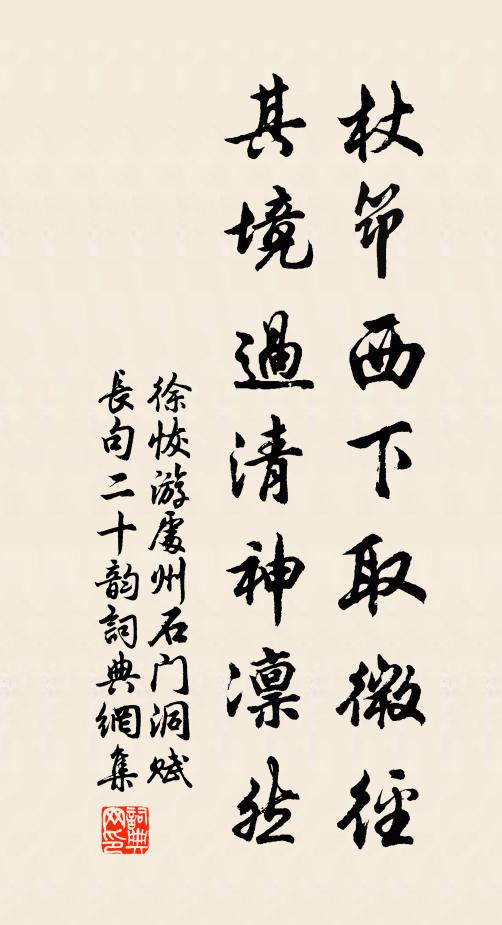 杖笻西下取微徑
其境過清神凛然
徐恢游處州石门洞赋
長句二十韵詞典網集
詞典网印